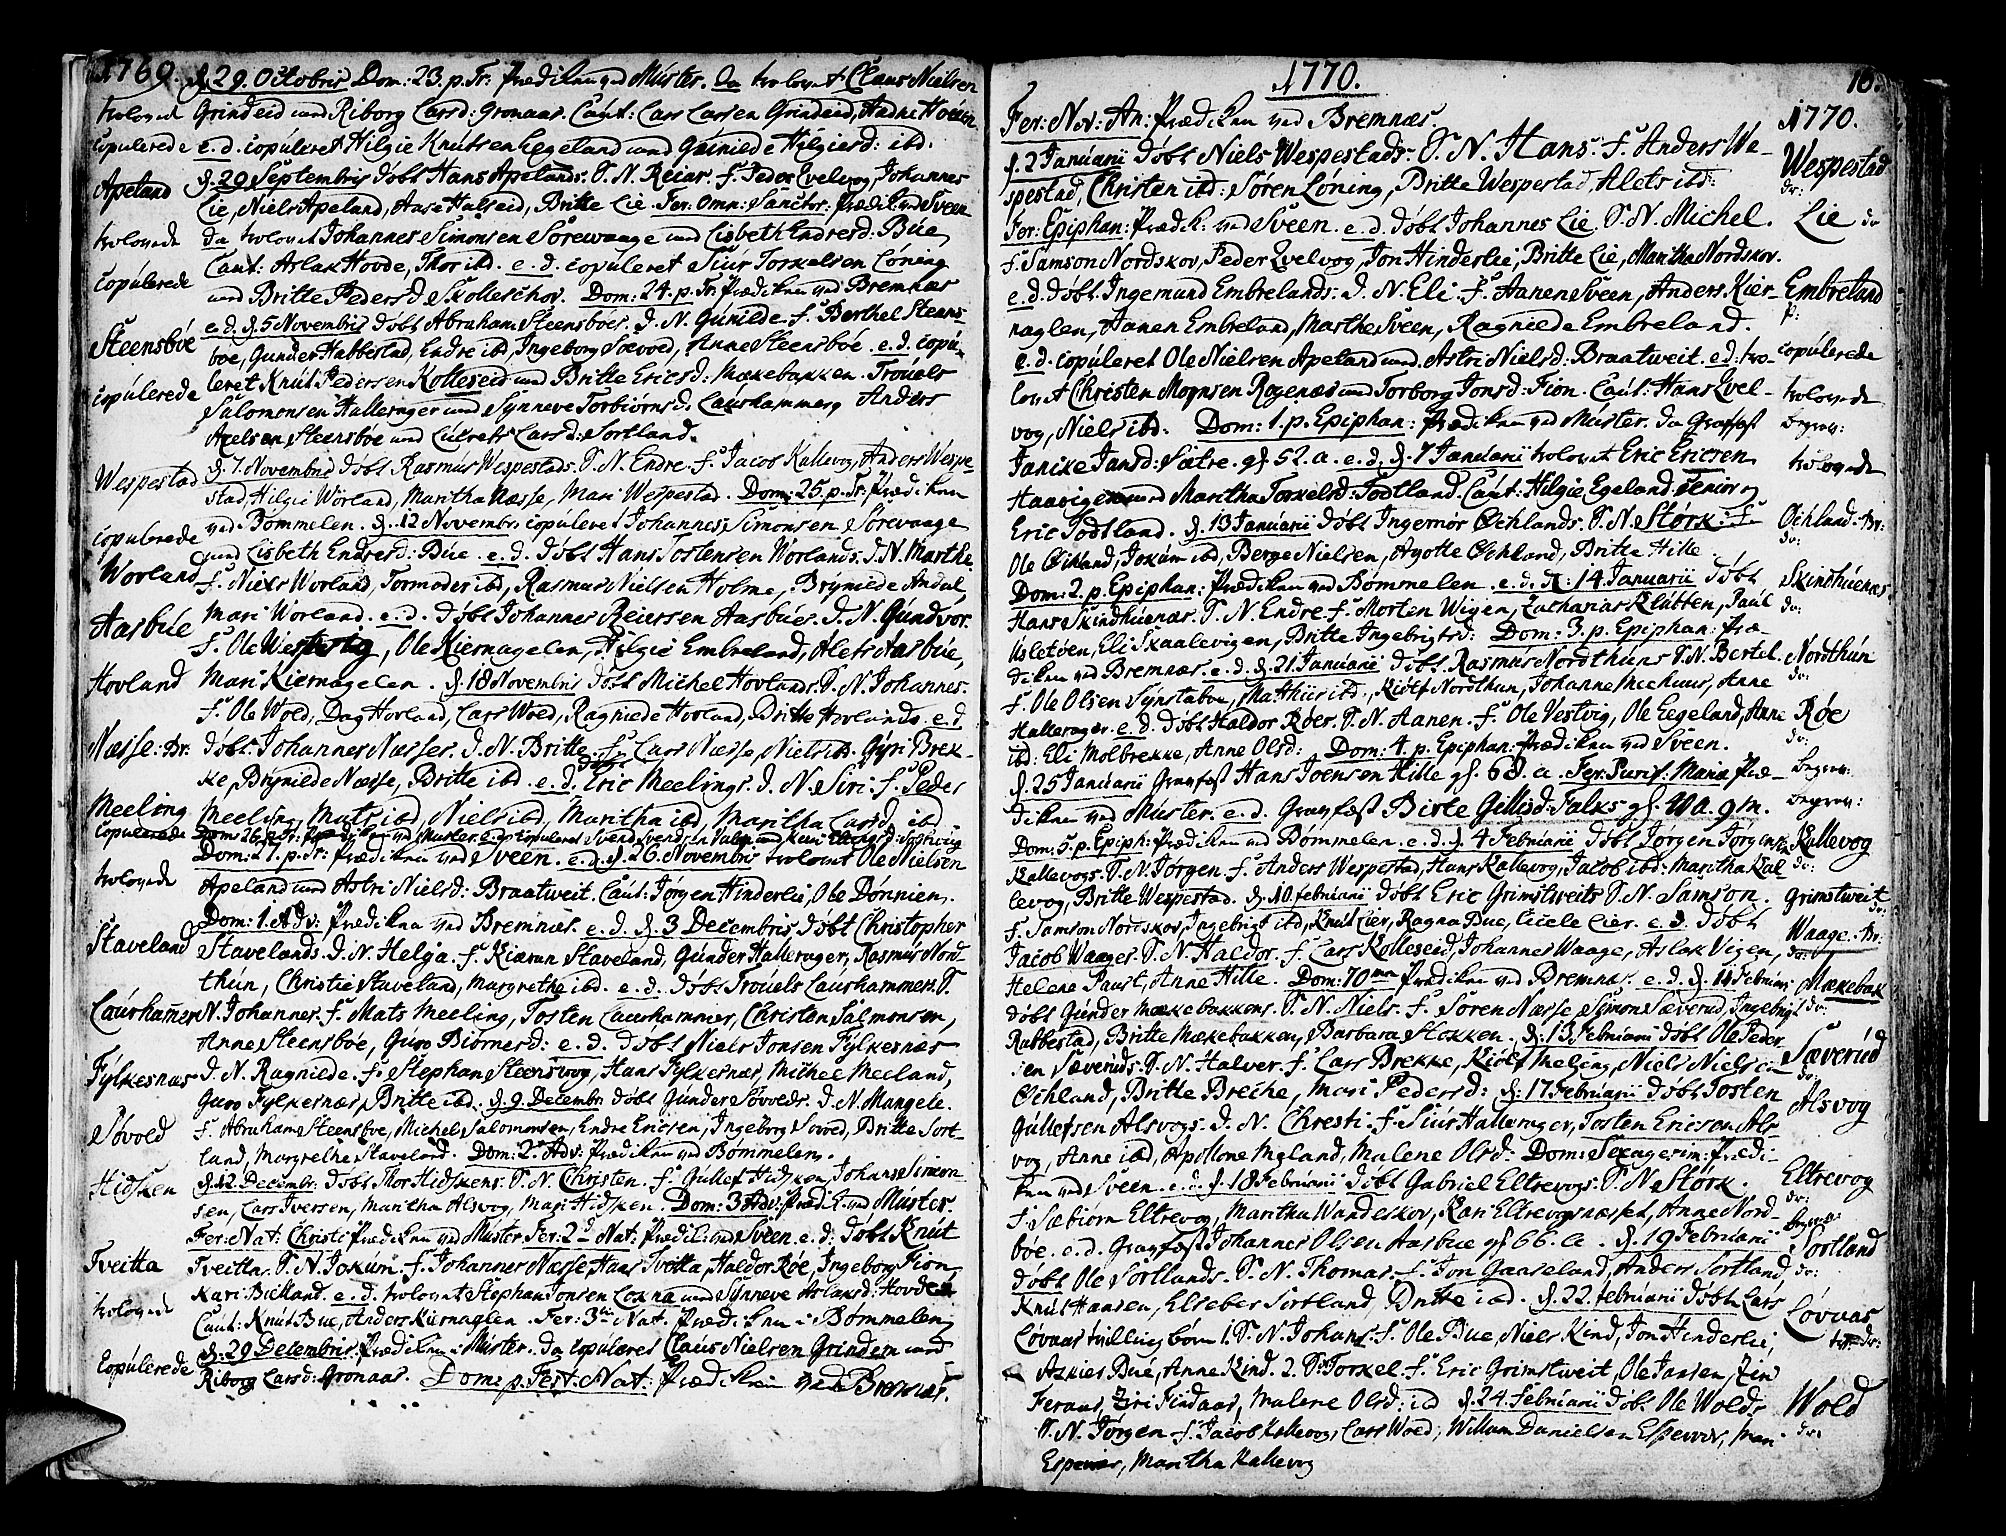 1769. d. 29. Octobris Dom: 23. p. Tr: Prædiken ved Müster. Da trolovet Claus Nielsen
trolovede Grindeid und Riborg Larsd: Gronaas. Caut: Lars Larsen Grindeid, Aadne Hoven
copulerede e. d. copuleret Hilgie Knutsen Egeland und Guniede Hilgiesd: ibd.
Apeland d. 29 Septembris Døbt Hans Apelands. S. N. Reiar. f. Peder Evelvog, Johannes
Lie, Niels Apeland, Aase Halseid, Britte Lie. Fer: Omn: Sanctor: Prædik: ved Sveen
trolovede da trolovet Johannes Simonsen Sørewaage und Lisbeth Endresd: Bue
Caut: Aslak Hovde, Thor ibd. e. d. copuleret Siur Torkelsen Løning
copulerede und Britte Pedersd: Skolleschov. Dom: 24. p. Tr: Prædiken ved Bremnæs
Steensbóe e. d. d. 5 Novembris døbt Abraham Steensbóes. D. N. Guniede. f. Berthel Steens-
boe, Gunder Habbestad, Endre ibd, Ingeborg Sovoed, Anne Steensboe. e. d. copu-
copulerede leret Knut Pedersen Kolleseid und Britte Ericsd: Mækebakken. Trouels
Salomonsen Hallerager und Synneve Torbiørnsd. Laurhammer, Anders
Axelsen Steensboe und Larsd: Sortland.
Wespestad d. 7. Novembris Døbt Rasmus Wespestads. S. N. Endre. f. Jacob Kallevog, Anders Wespe-
stad, Hilgie Worland, Maritha Næsse, Mari Wespestad. Dom: 25. p. Tr: Prædiken
copulerede ved Bømmelen. d. 12 Novembr: copuleret Johannes Simonsen Sørewaage
und Lisbeth Endresd: Bue. e. d. døbt Hans Tostensen Worlands. D. N. Marthe
Worland f. Niels Worland, Tormoder ibd, Rasmus Nielsen Holme, Bryniede Andal,
Mari Worland. e. d. døbt Johannes Reiersen Aasbues. D. N. Gundvor.
Aasbue f. Ole Westvig, Ole Kiernagelen, Hilgie Embreland, Alets Aasbue,
Hovland Mari Kiernagelen. d. 18 Novembris døbt Michel Hovlands. S. N. Johannes.
f. Ole Wold, Dag Hovland, Lars Woed, Ragniede Hovland, Britte Hovlands. e. d.
Næsse: Br: døbt Johannes Næsses. D. N. Britte. f. Lars Næsse, Niels ib. Gyri Brek-
ke, Bryniede Næsse, Britte ibd. e. d. døbt Eric Meelings. D. N. Siri. f. Peder
Meeling Meeling, Mats ibd, Niels ibd, Maritha ibd, Maritha Larsd, ibd
copulerede Dom: 26. p. Tr: Prædiken ved Muster. e. d. copuleret Svend Svendsen
Dom: 27. p. Tr: Prædiken ved Sveen. e. d. d. 26. Novembris trolovet Ole Nielsen
trolovede Apeland und Astri Nielsd: Braatweit. Caut: Jørgen Hinderlie, Ole Dønnien.
Dom: 1. Adv: Prædiken ved Bremnæs. e. d. d. 3 Decembris døbt Christopher
Staveland Stavelands. D. N. Helga. f. Kiæran Staveland, Gunder Hallerager, Rasmus Nord-
thun, Christie Staveland, Margrethe ibd. e. d. døbt Trouels Laurhammers. S.
Laurhammer N. Johannes. f. Mats Meeling, Tosten Laurhammer, Christen Salmonsen,
Anne Steensbóe, Guro Biørnesd: e. d. døbt Niels Jonsen Fylkesnæs
Fylkesnæs D. N. Ragniede. f. Stephan Steensvog, Hans Fylkesnæs, Michel Meeland,
Guro Fylkesnæs, Britte ibd. d. 9. Decembr døbt Gunder Sóvoeds. D. N. Mangele.
Sóvoed f. Abraham Steensboe, Michel Salomonsen, Endre Ericsen, Ingeborg Sovoed, Britte Sort-
land, Margrethe Staveland. Dom: 2. Adv: Prædiken ved Bømmelen.
Hidsken d. 12. Decembr: døbt Thor Hidskens. S. N. Christen. f. Gullef Hidsken, Johans Simon-
sen, Lars Iversen, Maritha Alsvog, Mari Hidsken. Dom: 3 Adv: Prædik: ved Muster.
Fer: Nat: Christi Prædiken ved Muster. Fer: 2. Nat: Prædik: ved Sveen. e. d: døbt Knut
Tveitta Tveitta. S. N. Jokum. f. Johannes Næsse, Haas Tveitta, Haldor Røe, Ingeborg Fion,
Kari Bielland. e. d. trolovet Stephan Jonsen Loxna und Synneve Aslaksd: Hovde
trolovede Caut: Knut Bue, Anders Kiernaglen. Fer: 3. Nat. Prædiken i Bømmelen
d. 29 Decembris Prædiken i Müster. Da copuleres Claus Nielsen Grindem und
copulerede Riborg Larsd: Gronaas. Dom: p. Fest: Nat: Prædiken ved Bremnæs.
1770. 16.
Fer: Nov: An: Prædiken ved Bremnæs. 1770.
d. 2 Januarii døbt Niels Wespestads. S. N. Hans. f. Anders We- Wespestad
spestad, Christen ibd: Søren Løning, Britte Wespestad, Alets ibd: do:
Fer: Epiphan: Prædik: ved Sveen. e. d. døbt Johannes Lie. S. N. Michel. Lie do
f. Samson Nordskov, Peder Evelvog, Jon Hinderlie, Britte Lie, Maritha Nordskov.
e. d. døbt Ingemund Embrelands. D. N. Eli. f. Aanen Sveen, Anders Kier- Embreland
naglen, Aanen Embreland, Marthe Sveen, Ragniede Embreland. p:
e. d. copuleret Ole Nielsen Apeland und Astri Nielsd: Braatweit. e. d: tro- copulerede
lovet Christen Mognsen Rogenæs und Torborg Jonsd: Fion. Caut: Hans Evel- trolovede
vog, Niels ibd. Dom: 1. p. Epiphan: Prædiken ved Müster. Da Grafæst Begrav:
Janike Jansd: Sætre. gl. 52. a. e. d. d. 7 Januarii trolovet Eric Ericsen trolovede
Haavigen und Maritha Torkelsd: Todtland. Caut: Hilgie Egeland senior og
Eric Todtland. d. 13 Januarii døbt Ingemor Øchlands. S. N. Størk. f. Øchland: Br:
Ole Øchland, Jokum ibd, Berge Nielsen, Agotte Øchland, Britte Hille. do:
Dom: 2. p. Epiphan: Prædiken ved Bømmelen. e. d. d: 14 Januarii døbt Skindhuenæs
Hans Skindhuenæs. S. N. Endre. f. Morten Wigen, Zacharias Klubben, Paul do:
Usletøen, Eli Skaalevigen, Britte Ingebrigtsd: Dom: 3. p. Epiphan: Præ-
diken ved Bremnæs. e. d. d. 21 Januarii døbt Rasmus Nordthuns S. N. Bertel. Nordthun
f. Ole Olsen Synstabø, Matthies ibd, Kiølf Nordthun, Johanne Meehuus, Anne do:
Hallerager. e. d. døbt Haldor Røes. S. N. Aanen. f. Ole Vestvig, Ole Eegeland, Anne Røe
ib: Eli Molbrekke, Anne Olsd: Dom: 4. p. Epiphan: Prædiken ved Sveen. do:
d. 25 Januarii Gravfæst Hans Joensen Hille gl. 63. a. Fer: Purif. Mariæ Præ- Begrav:
diken ved Muster. e. d. Gravfæst Birte Gillisd: Falks gl. 40 a. 9 m. Begrav:
Dom: 5. p. Epiph: Prædiken ved Bømmelen. e. d. d. 4 Februarii døbt Jørgen Jørgens. Kallevog
Kallevogs. S. N. Jørgen. f. Anders Wespestad, Hans Kallevog, Jacob ibd: Maritha Kal do:
levog, Britte Wespestad. d. 10 februarii døbt Eric Grimstweits S. N. Samson. Grimstweit
f. Samson Nordskov, Ingebrigt ibd, Knut Lier, Ragna Bue, Cicele Lier. e. d. døbt do:
Jacob Waages. S. N. Haldor. f. Lars Kolleseid, Johannes Waage, Aslak Vigen, Waage. Br:
Helene Paust, Anne Hille. Dom: 70ma Prædiken ved Bremnæs. e. d. d. 11 Februarii Mækebak
døbt Gunder Mækebakkens. S. N. Niels. f. Søren Næsse, Simon Sæverud, Ingebrigt do:
Rabbestad, Britte Mækebakken, Barbara Stokken. d. 13 Februarii døbt Ole Peder-
sen Sæveruds. S. N. Halver. f. Lars Brekke, Kiølf Meling, Niels Nielsen Sæverud
Øchland, Britte Breche, Mari Pedersd: d. 17 Februarii døbt Tosten do:
Gullefsen Alsvogs. D. N. Chresti. f. Siur Hallerager, Tosten Ericsen Als- Alsvog
vog, Anne ibd, Apollone Ingland, Malene Olsd. Dom: Sexagesim: Prædi-
ken ved Sveen. e. d. d. 18 Februarii døbt Gabriel Eltrevogs. S. N. Størk. Eltrevog
f. Sæbiørn Eltrevog, Maritha Wandeskov, Kari Eltrevogsnæsset, Anne Nord- do:
bøe. e. d. Gravfæst Johannes Olsen Aasbue gl. 66. a. d. 19 Februarii begrav:
døbt Ole Sortlands. S. N. Thomas. f. Jon Gaaseland, Anders Sortland, Sortland
Knut Hansen, Elseber Sortland, Britte ibd. d. 22. februarii døbt Lars do:
Løvaas tvilling børn 1. S. N. Johans. f. Ole Bue, Niels Kind, Jon Hinderlie, Løvaas
Askier Bue, Anne Kind. 2. S. Torkel. f. Eric Grimstweit, Ole Jansen, Zin do:
Feraas, Ziri Findaas, Malene Olsd: ibd d. 24. februarii døbt Ole Wolds Wold
S. N. Jørgen. f. Jacob Kallevog, Lars Woed, Willum Danielsen Espevær, Mari do:
Espevær, Maritha Kallevog